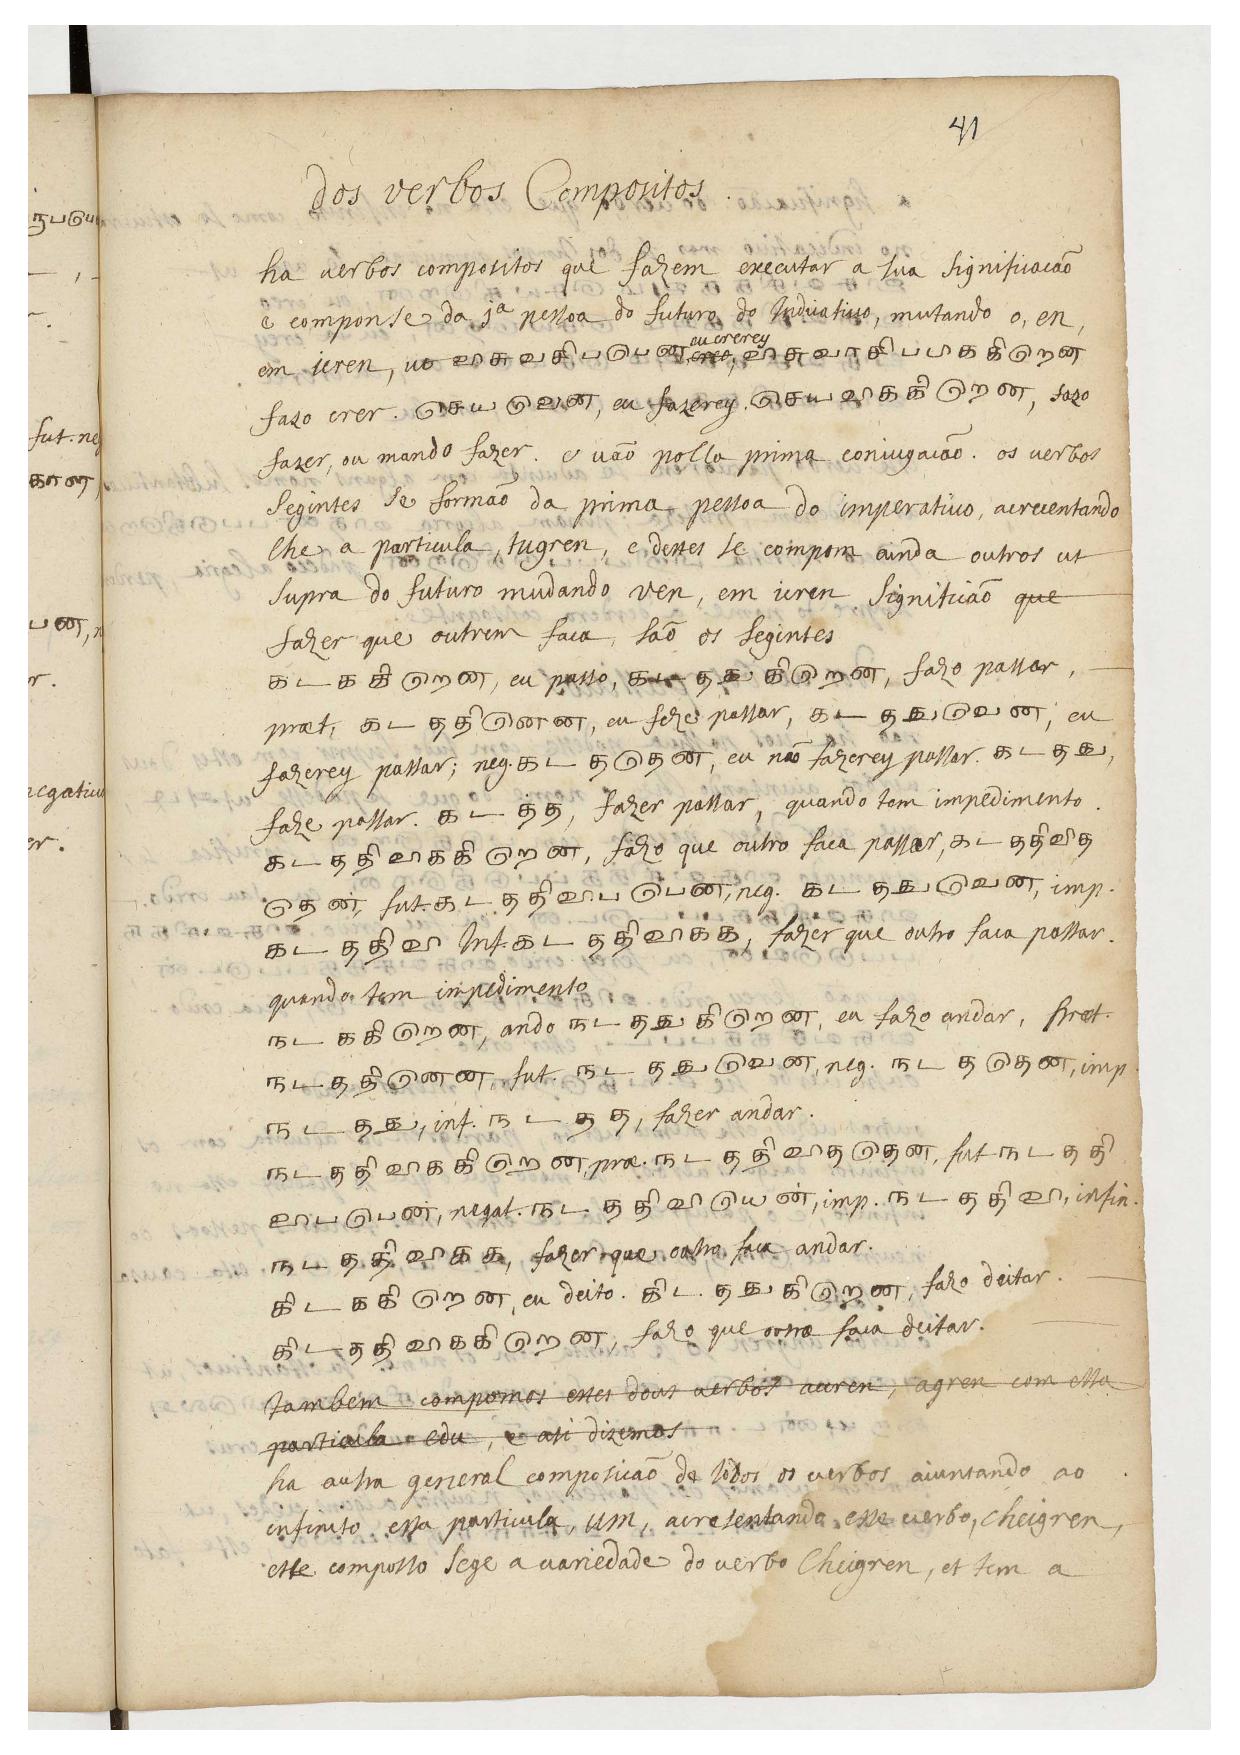 41
dos verbos Compositos.
ha verbos compositos que fazem executar a sua significacaõ
e componse da 1ª pessoa do futuro do Indicativo, mutando o, en,
em icren, vo விசுவசிபபடுபன eu crerey, விசுவாசிபபிககிறென
fazo crer. செயடுவன, eu fazerey. செயவிககிறென, fazo
fazer, ou mando fazer. e vaõ polla prima coniugacaõ. os verbos
segintes se formaõ da prima pessoa do imperativo, acrecentando
lhe a particula, tugren, e destes se compom ainda outros ut
supra do futuro mudando ven, em icren significaõ que
fazer que outrem faca, saõ os segintes
கடககிறென, eu passo, கடததுகிறென, fazo passar,
præt. கடததினென, eu feze passar, கடததுவென, eu
fazerey passar; neg. கடததென, eu naõ fazerey passar. கடதது,
faze passar. கடதத, fazer passar, quando tem impedimento.
கடததிவிககிறென, fazo que outro faca passar, கடததிவித
தென, fut. கடததிவிபபென, neg. கடததுவென, imp.
கடததிவி Inf. கடததிவிகக, fazer que outro faca passar.
quando tem impedimento
நடககிறென, ando நடததுகிறென, eu fazo andar, præt.
நடததினென, fut. நடததுவென, neg. நடததென, imp.
நடதது, inf. நடதத, fazer andar.
நடததிவிககிறென, præ. நடததிவிததென, fut நடததி
விபபென, negat. நடததிவியென, imp. நடததிவி, infin.
நடததிவிகக, fazer que outro faca andar.
கிடககிறென, eu deito. கிடததுகிறென, fazo deitar.
கிடததிவிககிறென, fazo que outro faca deitar.
tambem compomos estes dous verbos acren, agren com essa
particula edu, e asi dizemos
ha autra general composicaõ de todos os verbos aiuntando ao
infinito essa particula, um, acresentando esse verbo, cheigren,
este composto sege a variedade do verbo Cheigren, et tem a